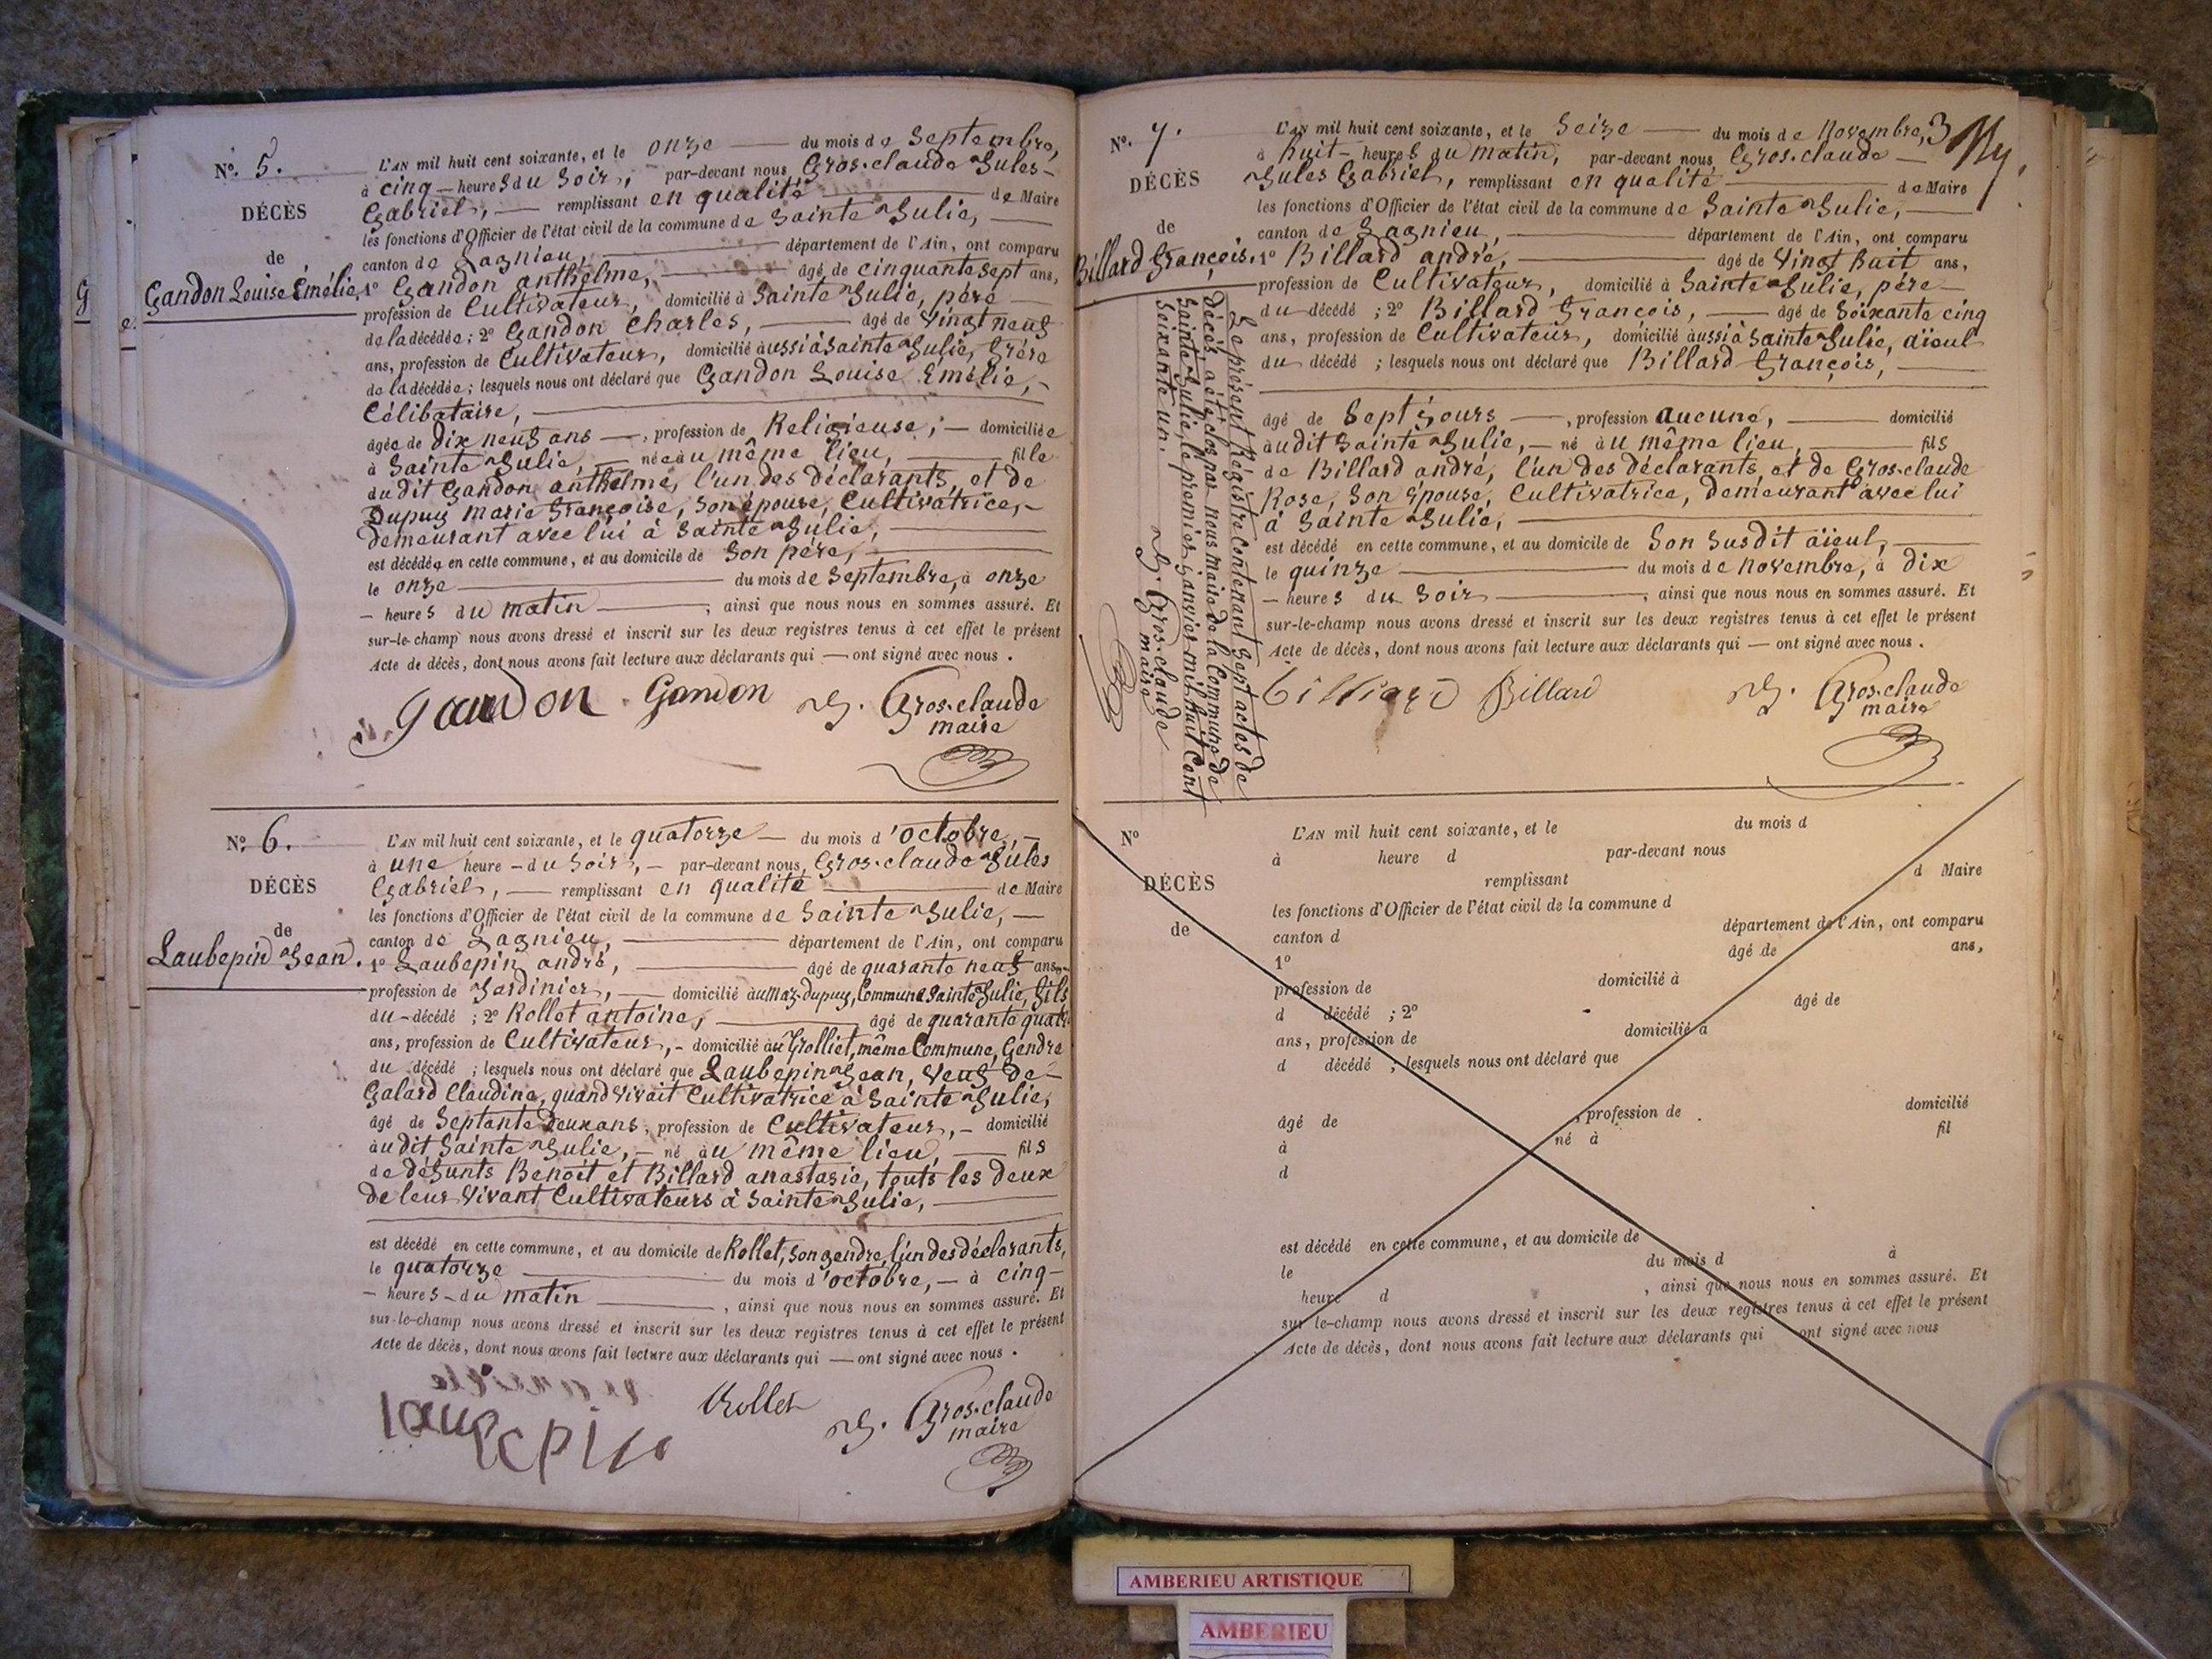 N.o 5.
DÉCÈS
de
Gandon Louise Émélie,
L'AN mil huit cent soixante, et le onze du mois de Septembre,
à cinq heures du Soir, par-devant nous Gros-claude Jules
Gabriel, remplissant en qualité de Maire
les fonctions d'Officier de l'état civil de la commune de Sainte Julie,
canton de Lagnieu, département de l'Ain, ont comparu
1o Gandon anthelme, âgé de cinquante sept ans,
profession de Cultivateur, domicilié à Sainte Julie, pére
de la décédée ; 2o Gandon Charles, âgé de vingt neuf
ans, profession de Cultivateur, domicilié aussi à Sainte Julie, frére
de la décédée ; lesquels nous ont déclaré que Gandon Louise Emélie,
Célibataire,
âgée de dix neuf ans, profession de Religieuse, domiciliée
à Sainte Julie, née au même lieu, fille
du dit Gandon anthelme, l'un des déclarants, et de
Dupuy Marie Françoise, Son épouse, Cultivatrice,
demeurant avec lui à Sainte Julie,
est décédée en cette commune, et au domicile de Son pére,
le onze du mois de Septembre, à onze
heures du matin, ainsi que nous nous en sommes assuré. Et
sur-le-champ nous avons dressé et inscrit sur les deux registres tenus à cet effet le présent
Acte de décès, dont nous avons fait lecture aux déclarants qui — ont signé avec nous.
gandon Gandon J. G. Gros-claude
maire
N.o 6.
DÉCÈS
de
Laubepin Jean.
L'AN mil huit cent soixante, et le quatorze du mois d'octobre,
à une heure du Soir, par-devant nous, Gros-claude Jules
Gabriel, remplissant en qualité de Maire
les fonctions d'Officier de l'état civil de la commune de Sainte Julie,
canton de Lagnieu, département de l'Ain, ont comparu
1o Laubepin andré, âgé de quarante neuf ans,
profession de Jardinier, domicilié au Maz-dupuy, Commune Sainte Julie, fils
du décédé ; 2o Rollet antoine, âgé de quarante quatre
ans, profession de Cultivateur, domicilié au Trolliet, même Commune, Gendre
du décédé ; lesquels nous ont déclaré que Laubepin Jean, veuf de
Galard Claudine, quand vivait Cultivatrice à Sainte Julie,
âgé de Septante deux ans, profession de Cultivateur, domicilié
audit Sainte Julie, né au même lieu, fils
de défunts Benoît et Billard anastasie, touts les deux
de leur vivant Cultivateurs à Sainte Julie,
est décédé en cette commune, et au domicile de Rollet, son gendre, l'un des déclarants,
le quatorze du mois d'octobre, à cinq
heures du matin, ainsi que nous nous en sommes assuré. Et
sur-le-champ nous avons dressé et inscrit sur les deux registres tenus à cet effet le présent
Acte de décès, dont nous avons fait lecture aux déclarants qui — ont signé avec nous.
laubepin Rollet J. G. Gros-claude
maire
N.o 7.
DÉCÈS
de
Billard François.
L'AN mil huit cent soixante, et le Seize du mois de Novembre, 3
à huit heures du matin, par-devant nous Gros-claude
Jules Gabriel, remplissant en qualité de Maire
les fonctions d'Officier de l'état civil de la commune de Sainte Julie,
canton de Lagnieu, département de l'Ain, ont comparu
1o Billard andré, âgé de vingt huit ans,
profession de Cultivateur, domicilié à Sainte Julie, pére
du décédé ; 2o Billard François, âgé de Soixante cinq
ans, profession de Cultivateur, domicilié aussi à Sainte Julie, aïeul
du décédé ; lesquels nous ont déclaré que Billard François,
âgé de Sept jours, profession aucune, domicilié
audit Sainte Julie, né au même lieu, fils
de Billard andré, l'un des déclarants et de Gros-claude
Rose, Son épouse, Cultivatrice, demeurant avec lui
à Sainte Julie,
est décédé en cette commune, et au domicile de Son susdit aïeul,
le quinze du mois de novembre, à dix
heures du Soir, ainsi que nous nous en sommes assuré. Et
sur-le-champ nous avons dressé et inscrit sur les deux registres tenus à cet effet le présent
Acte de décès, dont nous avons fait lecture aux déclarants qui — ont signé avec nous.
billiard Billard J. G. Gros-claude
maire
Le présent Régistre Contenant Sept actes de
Décés, a été clos par nous maire de la Commune de
Sainte Julie, le premier Janvier mil huit Cent
Soixante un.
J. G. Gros-claude
maire
No
DÉCÈS
de
L'AN mil huit cent soixante, et le du mois d
à heure d par-devant nous
remplissant d Maire
les fonctions d'Officier de l'état civil de la commune d
canton d département de l'Ain, ont comparu
1o âgé de ans,
profession de domicilié à
d décédé ; 2o âgé de
ans, profession de domicilié à
d décédé ; lesquels nous ont déclaré que
âgé de , profession de domicilié
à né à fil
d
est décédé en cette commune, et au domicile de
le du mois d à
heure d , ainsi que nous nous en sommes assuré. Et
sur le-champ nous avons dressé et inscrit sur les deux registres tenus à cet effet le présent
Acte de décès, dont nous avons fait lecture aux déclarants qui ont signé avec nous
G
e.
AMBERIEU ARTISTIQUE
AMBERIEU